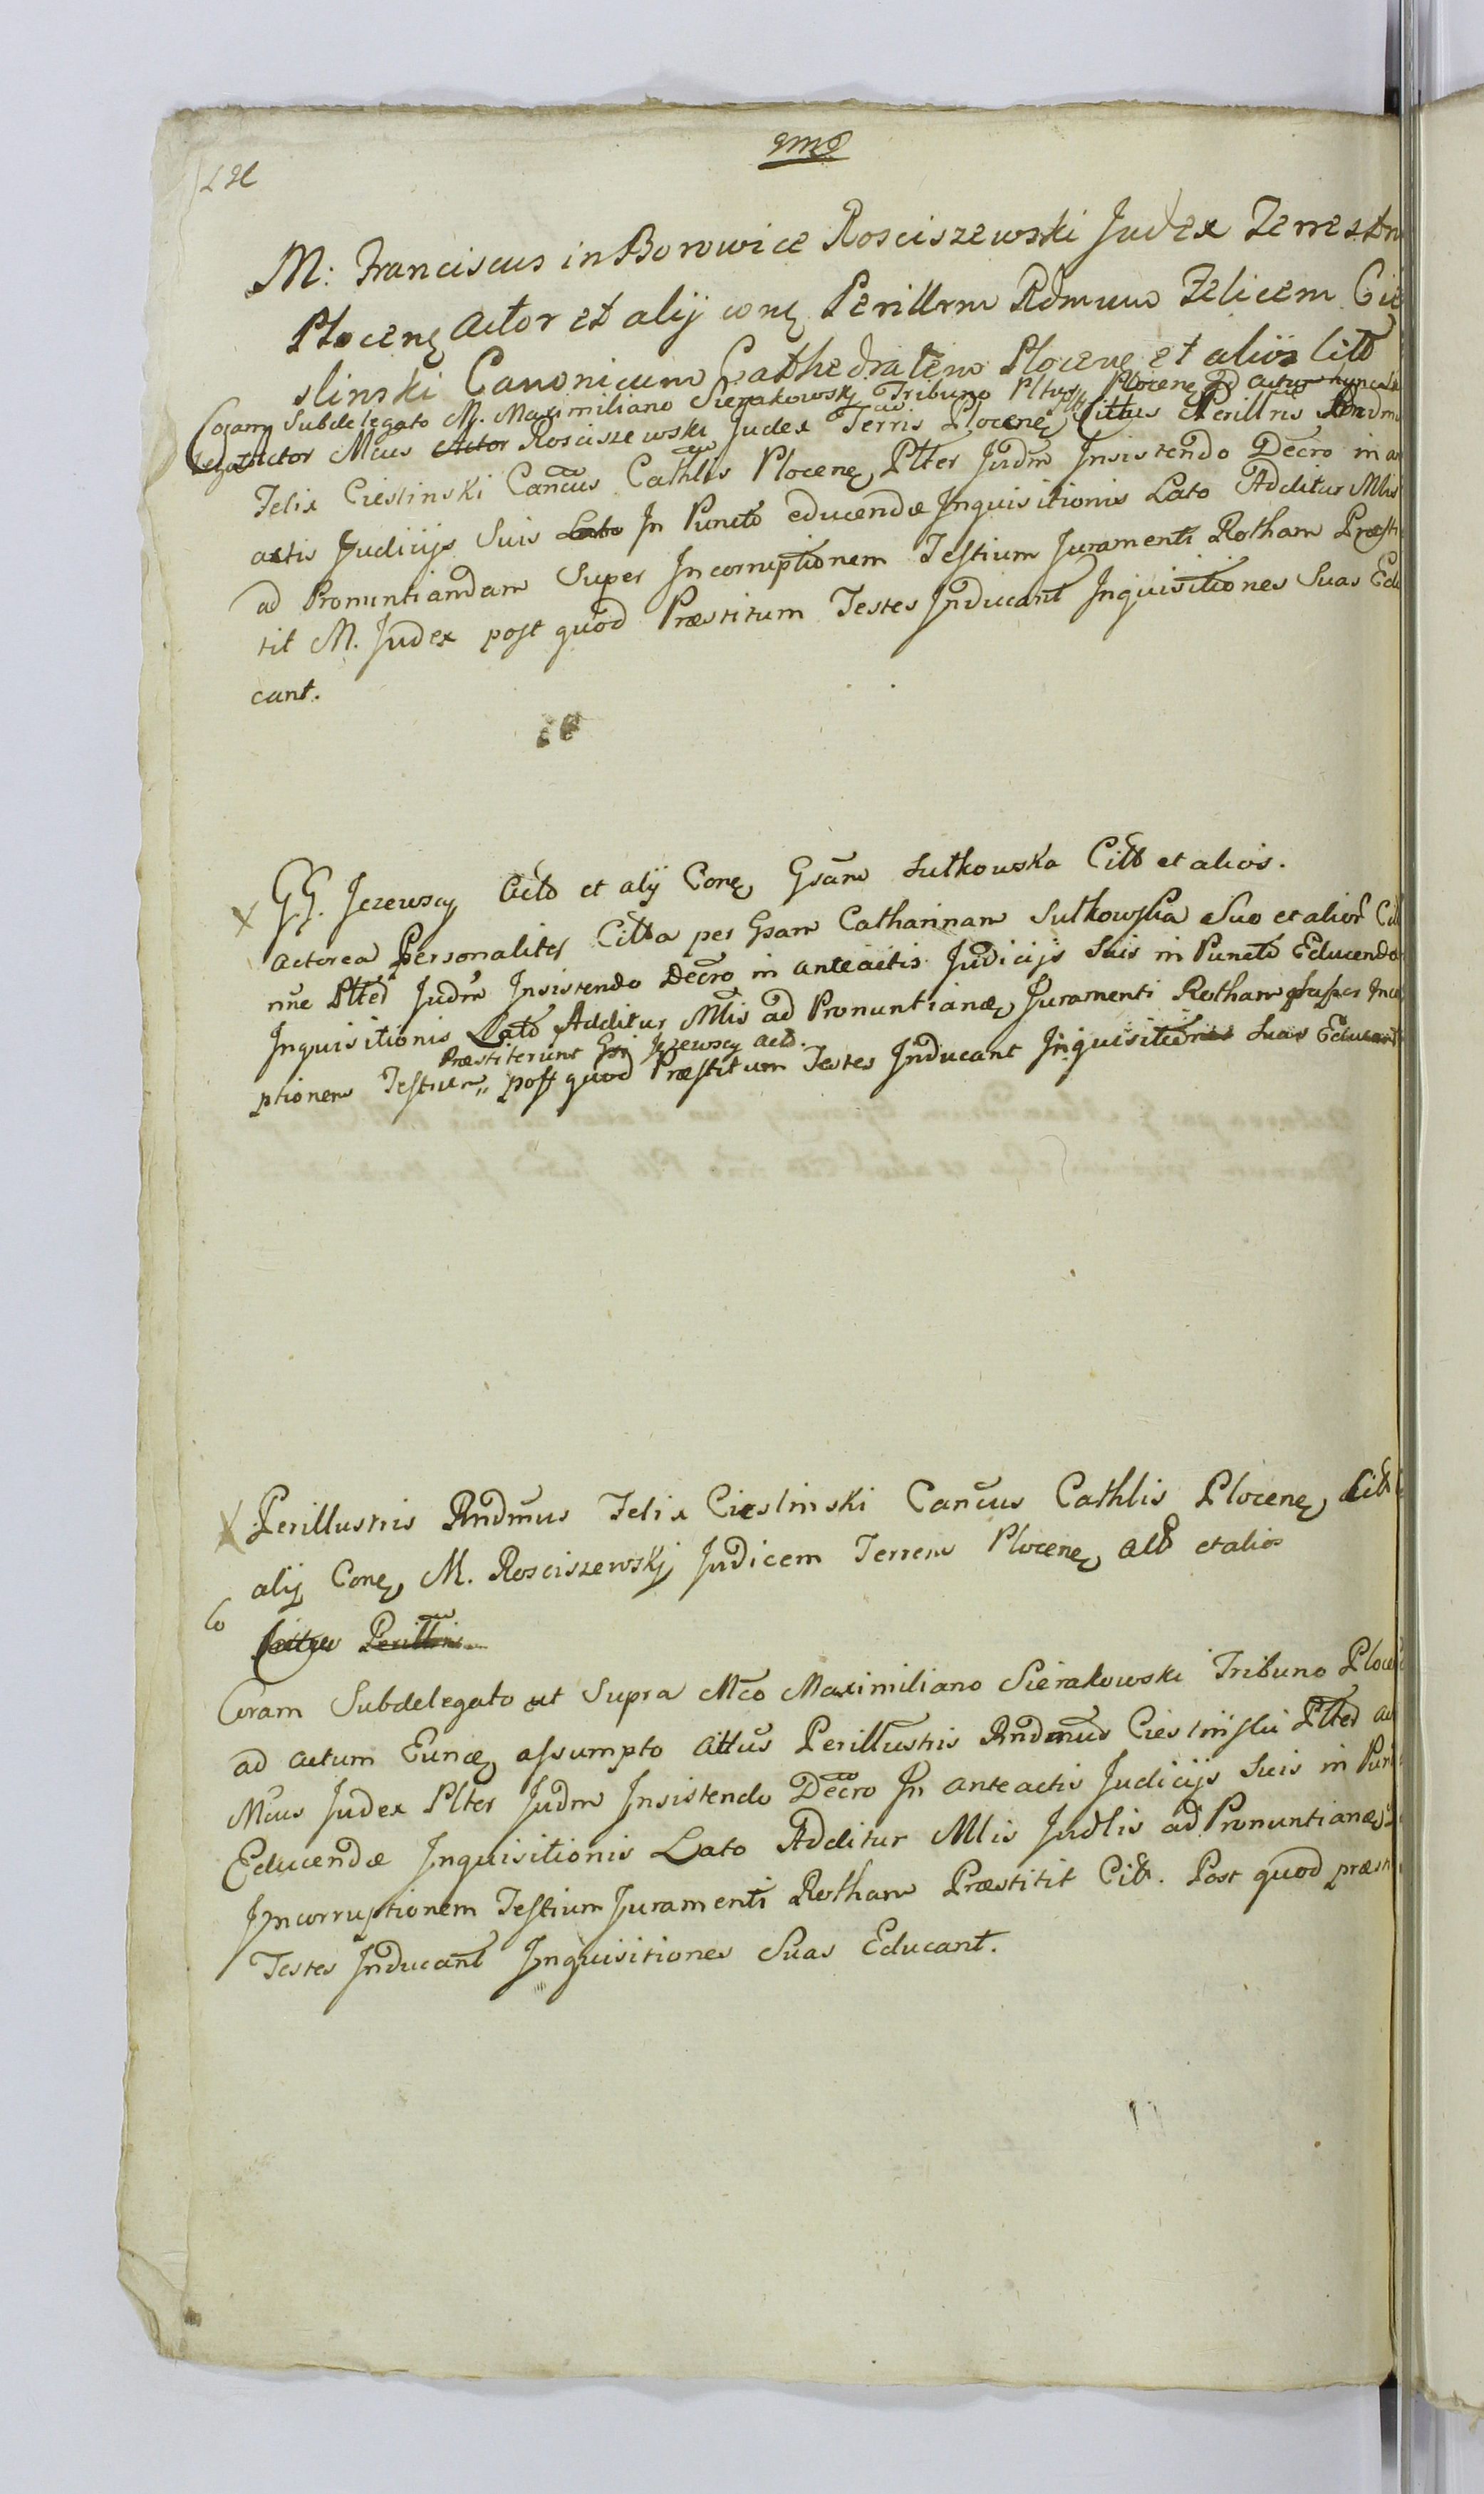 M: Franciscus in Borowice Rosciszewski Judex Terrestr
Plocenę Actor et alij conę Perillrm Rdmum Felicem Cie
slinski Canonicum Cathedralem Plocenę et alios Citt
Coram Subdelegato M. Maximiliano Sierakowskj Tribuno Plocenę ad actum hunc
Actor Mcus Actor Rosciszewski Judex Terris Plocenę Cittus Perillris Rndm
Felix Cieslinski Cancus Cathlis Plocenę Plter Judm Insistendo Decro in an
actis Judicijs Suis Lato In Puncto educendæ Inquisitionis Lato Additur Mlis
ad Pronuntiandam Super Incorruptionem Testium Juramenti Rotham Præsti
tit M. Judex post quod Præstitum Testes Inducant Inquisitiones Suas Edu
cant.
GG. Jezewscy Acto et alij Conę Gsam Sutkowska Citt et alios.
Actorea Personaliter Citta per Gsam Catharinam Sutkowska Suo et alior Citt
nne Plted Judm Insistendo Decro in anteactis Judicijs Suis in Puncto Educendæ
Inquisitionis Lato Additur Mlis ad Pronuntianæ Juramenti Rotham super Inco
Præstiterunt Gsi Jezewscy Acto.
ptionem Testium post quod Præstitum Testes Inducant Inquisitiones Suas Educant
Perillustris Rndmus Felix Cieslinski Cancus Cathlis Plocenę Citt
alij Conę M. Rosciszewskj Judicem Terrem Plocenę Att et alios
Co
Cittus Perillris
Coram Subdelegato ut Supra Mco Maximiliano Sierakowski Tribuno Ploce
ad actum Eunæ assumpto Attus Perillustris Rndmus Cieslinski Plted
Mcus Judex Plter Judm Insistendo Decro In anteactis Judicijs Suis in Pun
Educendæ Inquisitionis Lato Additur Mlis Judlis ad Pronuntianæ
Incorruptionem Testium Juramenti Rotham Præstitit Citt. Post quod præsti
Testes Inducant Inquisitiones Suas Educant.